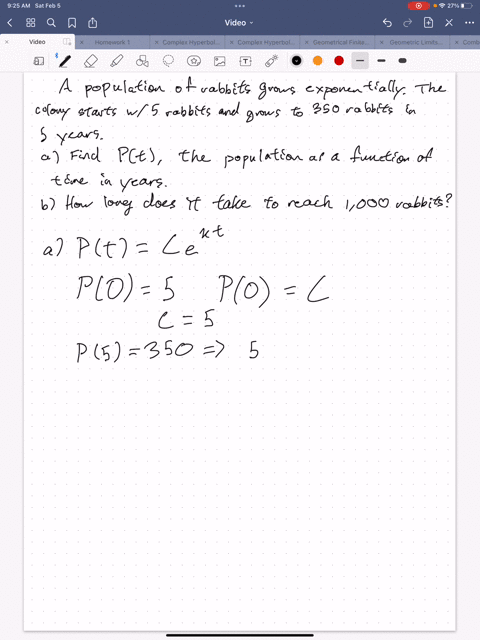 9:25 AM Sat Feb 5
27%
Video
Video
Homework 1
Complex Hyperbol...
Complex Hyperbol...
Geometrical Finite...
Geometric Limits...
A population of rabbits grows exponentially. The
colony starts w/ 5 rabbits and grows to 350 rabbits in
5 years.
a) Find P(t), the population as a function of
time in years.
b) How long does it take to reach 1,000 rabbits?
a) P(t) = Ce^{kt}
P(0) = 5 P(0) = C
C = 5
P(5) = 350 => 5